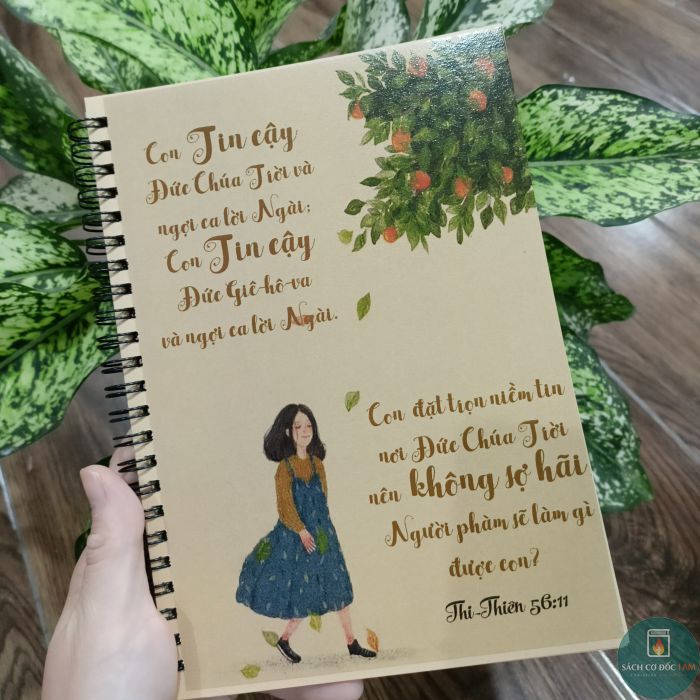 Con Tin cậy
Đức Chúa Trời và
ngợi ca lời Ngài;
Con Tin cậy
Đức Giê-hô-va
và ngợi ca lời Ngài.
Con đặt trọn niềm tin
nơi Đức Chúa Trời
nên không sợ hãi
Người phàm sẽ làm gì
được con?
Thi-Thiên 56:11
SÁCH CƠ ĐỐC LAM